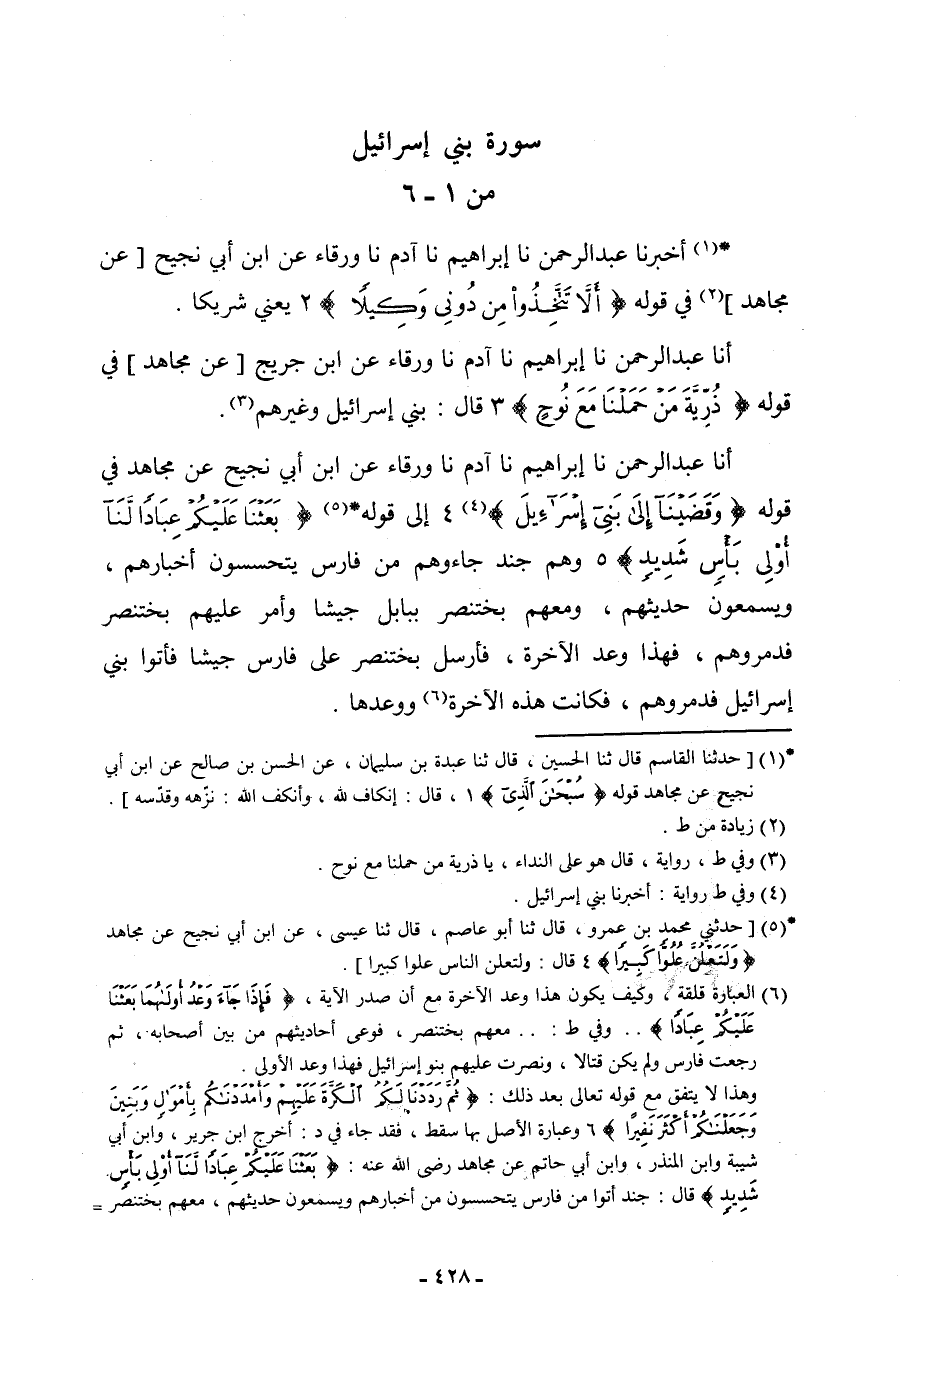 سورة بني إسرائيل
من ١ - ٦
*(١) أخبرنا عبدالرحمن نا إبراهيم نا آدم نا ورقاء عن ابن أبي نجيح [ عن
مجاهد ](٢) في قوله ﴿ أَلَّا تَتَّخِذُواْ مِن دُونِى وَكِيلًا ﴾ ٢ يعني شريكا .
أنا عبدالرحمن نا إبراهيم نا آدم نا ورقاء عن ابن جريج [ عن مجاهد ] في
قوله ﴿ ذُرِّيَّةَ مَنْ حَمَلْنَا مَعَ نُوحٍ ﴾ ٣ قال : بني إسرائيل وغيرهم(٣) .
أنا عبدالرحمن نا إبراهيم نا آدم نا ورقاء عن ابن أبي نجيح عن مجاهد في
قوله ﴿ وَقَضَيْنَآ إِلَىٰ بَنِىٓ إِسْرَٰٓءِيلَ ﴾(٤) ٤ إلى قوله*(٥) ﴿ بَعَثْنَا عَلَيْكُمْ عِبَادًا لَّنَآ
أُوْلِى بَأْسٍ شَدِيدٍ ﴾ ٥ وهم جند جاءوهم من فارس يتحسسون أخبارهم ،
ويسمعون حديثهم ، ومعهم بختنصر ببابل جيشا وأمر عليهم بختنصر
فدمروهم ، فهذا وعد الآخرة ، فأرسل بختنصر على فارس جيشا فأتوا بني
إسرائيل فدمروهم ، فكانت هذه الآخرة(٦) ووعدها .
*(١) [ حدثنا القاسم قال ثنا الحسين ، قال ثنا عبدة بن سليمان ، عن الحسن بن صالح عن ابن أبي
نجيح عن مجاهد قوله ﴿ سُبْحَٰنَ ٱلَّذِىٓ ﴾ ١ ، قال : إنكاف لله ، وأنكف الله : نزّهه وقدّسه ] .
(٢) زيادة من ط .
(٣) وفي ط ، رواية ، قال هو على النداء ، يا ذرية من حملنا مع نوح .
(٤) وفي ط رواية : أخبرنا بني إسرائيل .
*(٥) [ حدثني محمد بن عمرو ، قال ثنا أبو عاصم ، قال ثنا عيسى ، عن ابن أبي نجيح عن مجاهد
﴿ وَلَتَعْلُنَّ عُلُوًّا كَبِيرًا ﴾ ٤ قال : ولتعلن الناس علوا كبيرا ] .
(٦) العبارة قلقة ، وكيف يكون هذا وعد الآخرة مع أن صدر الآية ، ﴿ فَإِذَا جَآءَ وَعْدُ أُولَىٰهُمَا بَعَثْنَا
عَلَيْكُمْ عِبَادًا ﴾ .. وفي ط : .. معهم بختنصر ، فوعى أحاديثهم من بين أصحابه ، ثم
رجعت فارس ولم يكن قتالا ، ونصرت عليهم بنو إسرائيل فهذا وعد الأولى .
وهذا لا يتفق مع قوله تعالى بعد ذلك : ﴿ ثُمَّ رَدَدْنَا لَكُمُ ٱلْكَرَّةَ عَلَيْهِمْ وَأَمْدَدْنَٰكُم بِأَمْوَٰلٍ وَبَنِينَ
وَجَعَلْنَٰكُمْ أَكْثَرَ نَفِيرًا ﴾ ٦ وعبارة الأصل بها سقط ، فقد جاء في د : أخرج ابن جرير ، وابن أبي
شيبة وابن المنذر ، وابن أبي حاتم عن مجاهد رضى الله عنه : ﴿ بَعَثْنَا عَلَيْكُمْ عِبَادًا لَّنَآ أُوْلِى بَأْسٍ
شَدِيدٍ ﴾ قال : جند أتوا من فارس يتحسسون من أخبارهم ويسمعون حديثهم ، معهم بختنصر =
- ٤٢٨ -